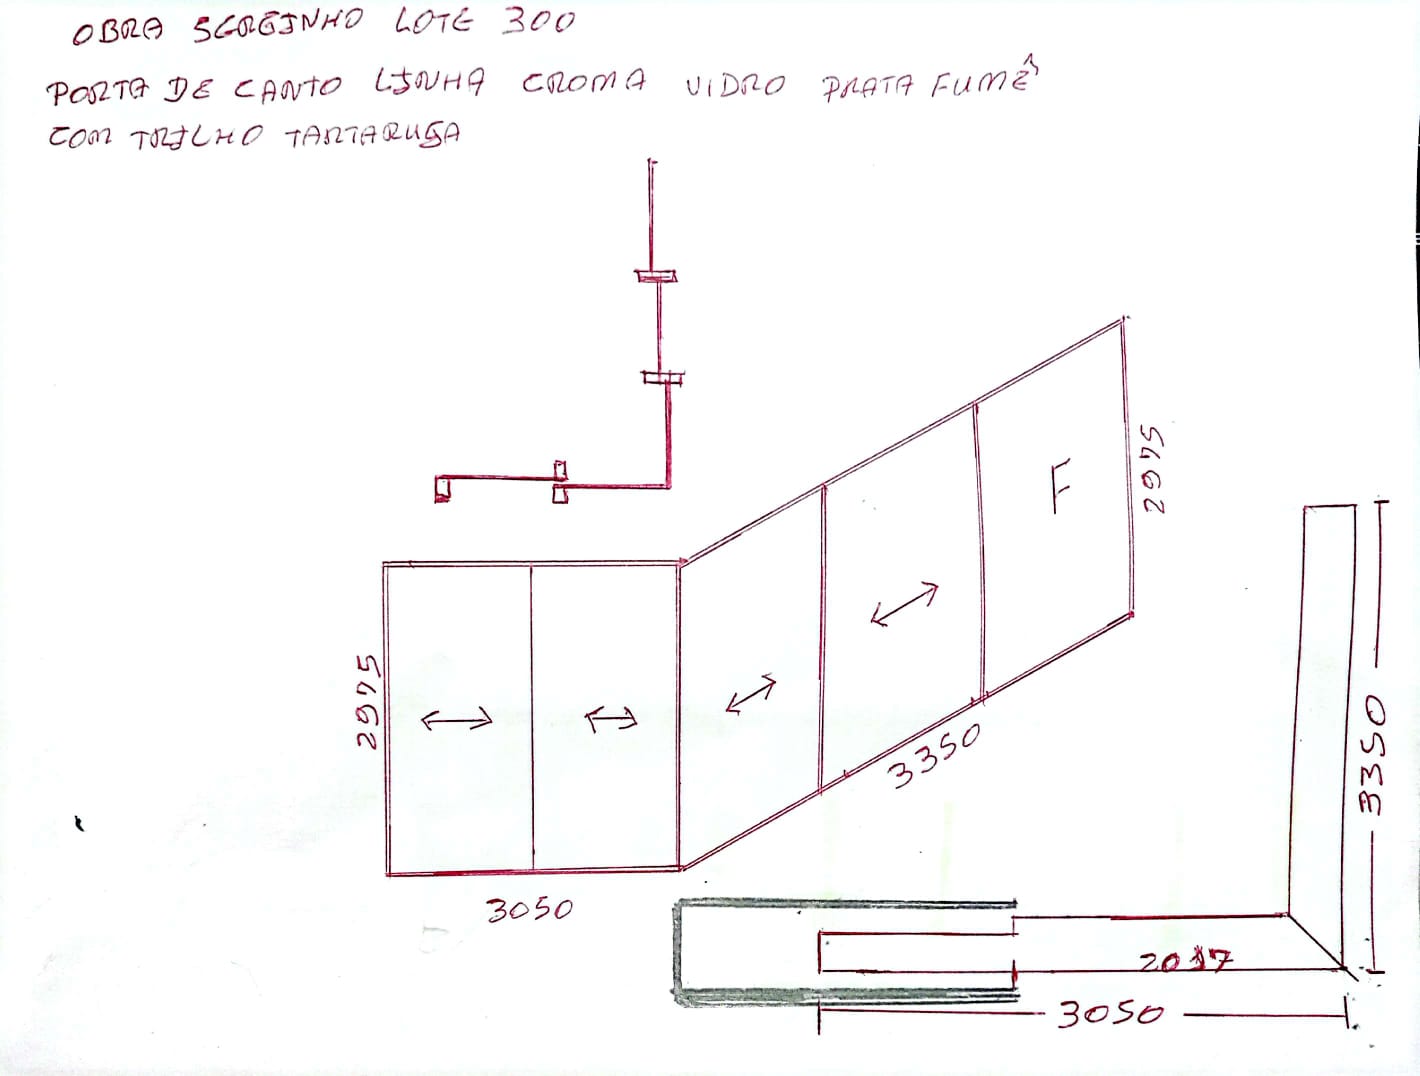 OBRA SERGINHO LOTE 300
PORTA DE CANTO LINHA CROMA VIDRO PRATA FUMÊ
COM TRILHO TARTARUGA
F
2975
2975
3350
3050
3350
2017
3050